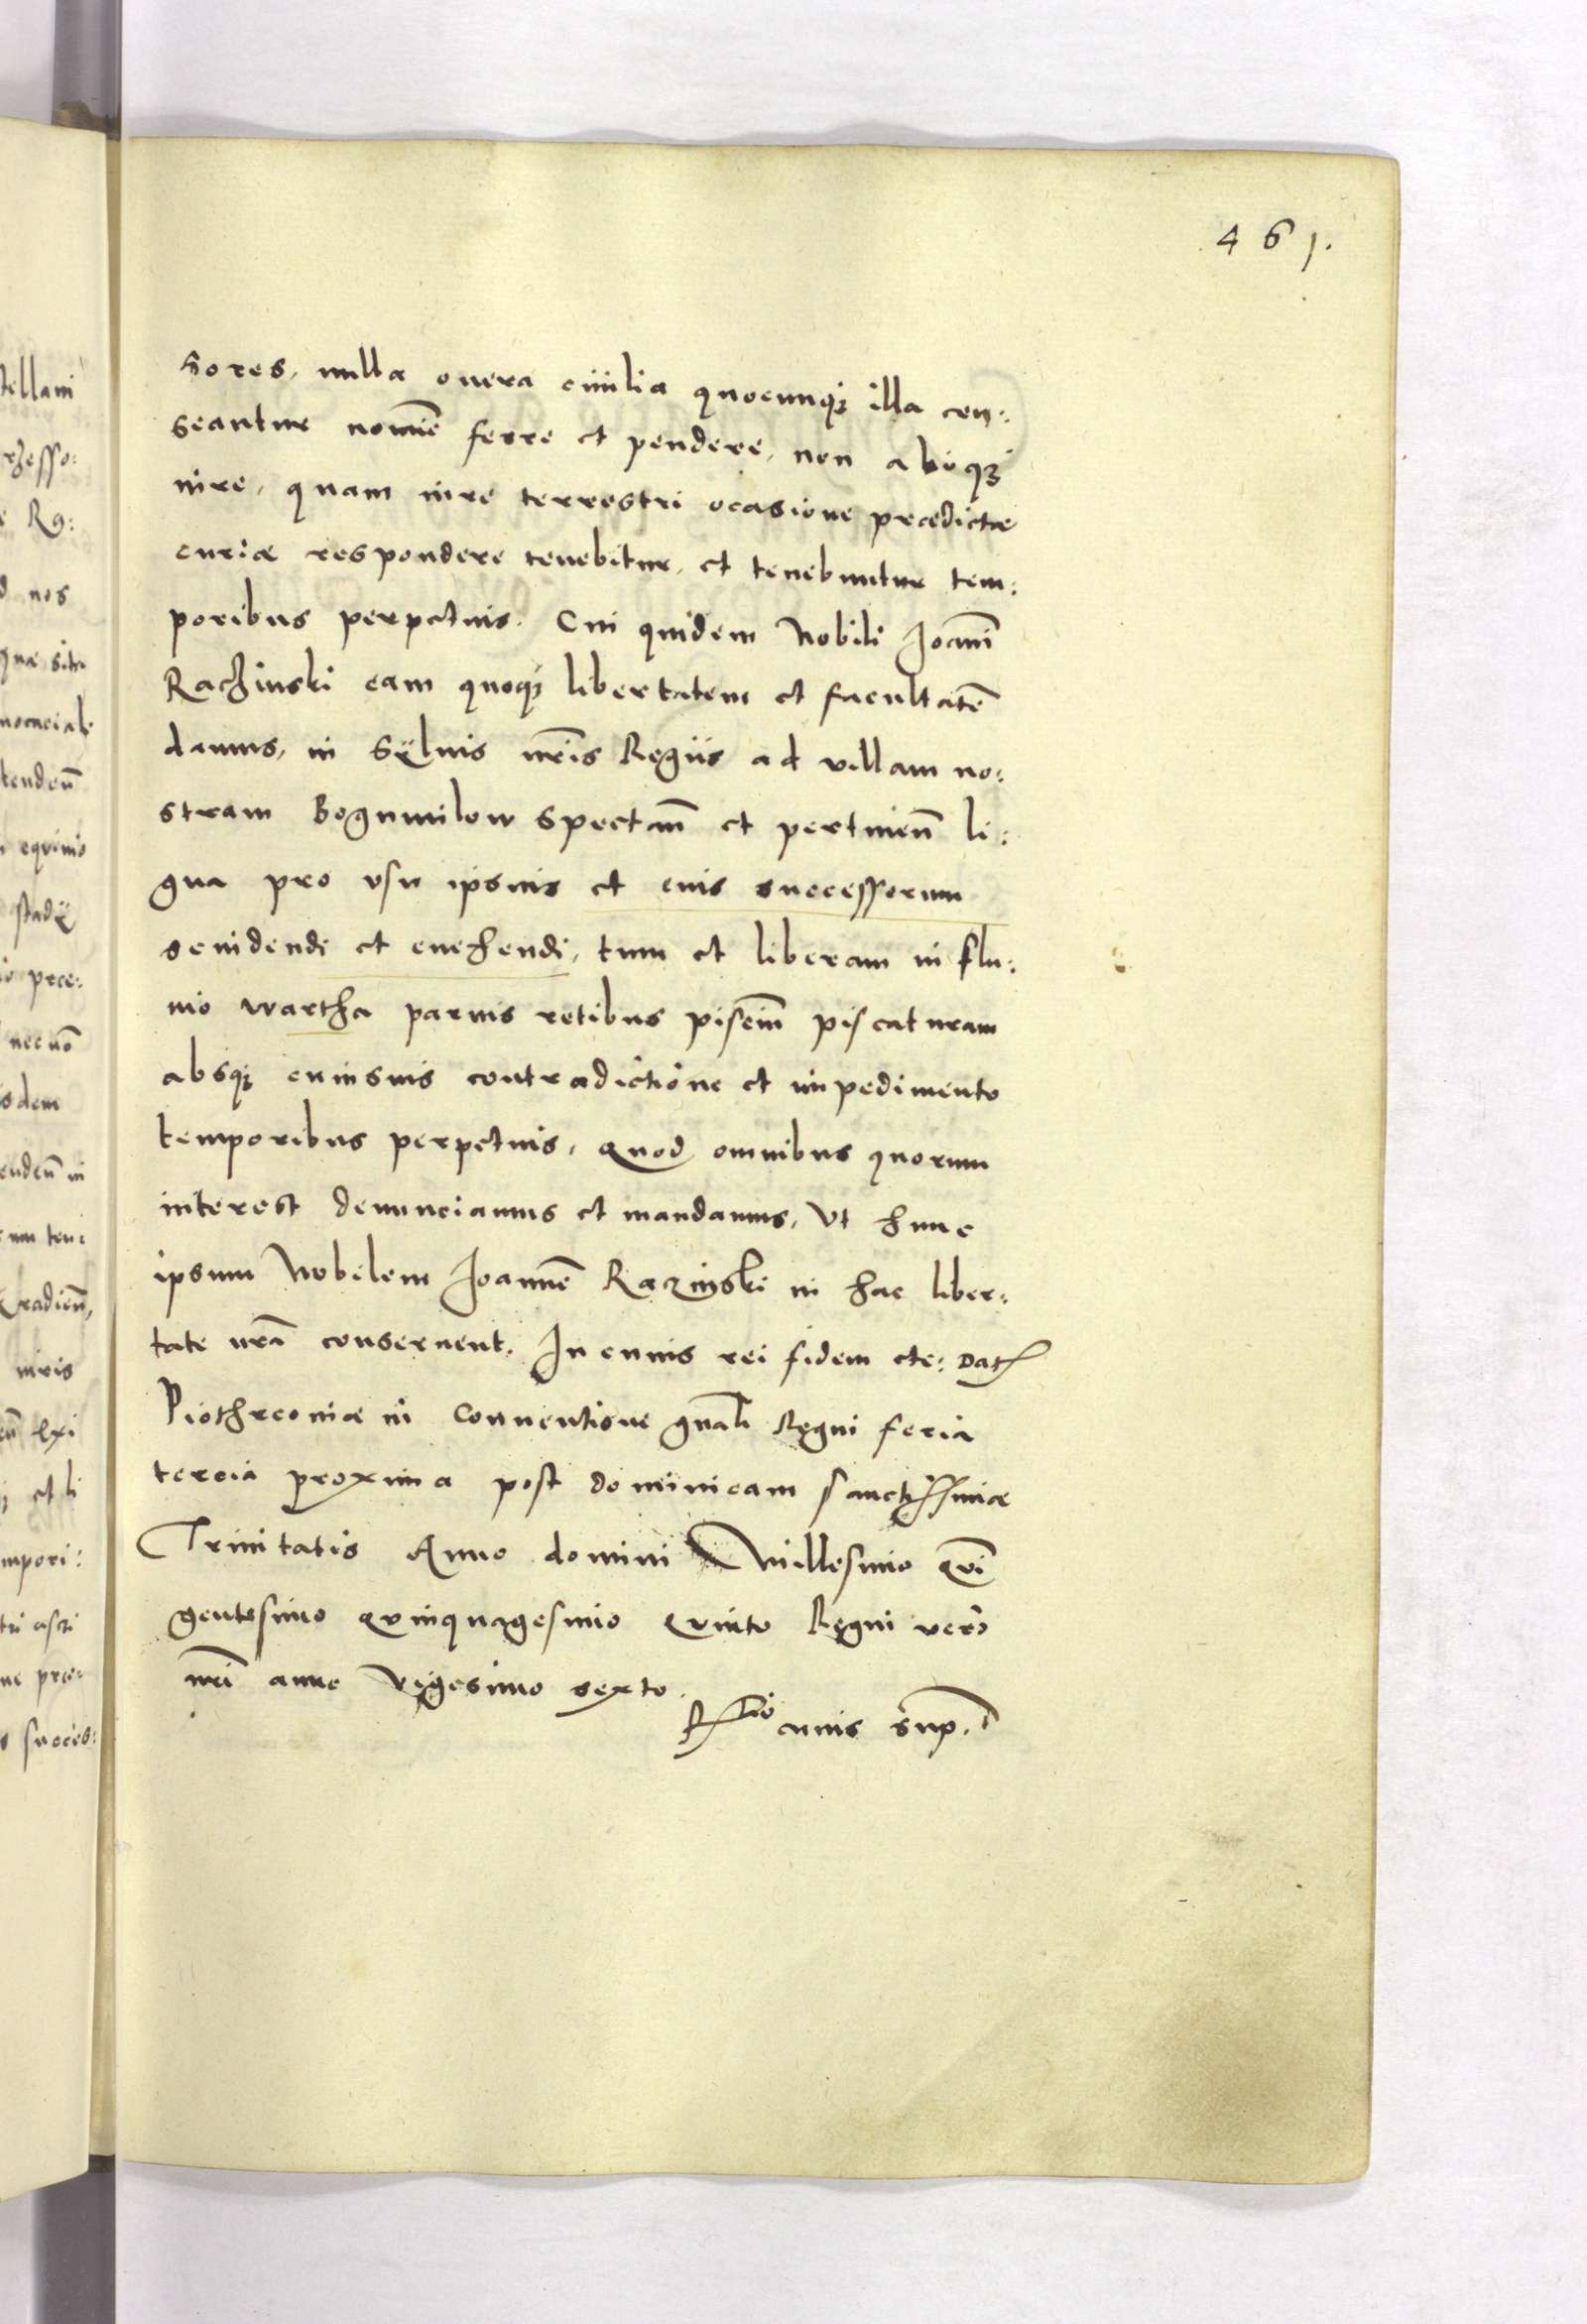 461.
sores, nulla onera civilia quocunqꝫ illa cen:
seantur nomīe ferre et pendere, non alioqꝫ
iure, quam iure terrestri ocasione prædictæ
curiæ respondere tenebitur, et tenebuntur tem:
poribus perpetuis. Cui quidem Nobili Joāni
Raczinski eam quoqꝫ libertatem et facultatē
damus, in Sylvis nr̄is Regiis ad villam no:
stram Bogumilow Spectan̄ et pertinen̄ li:
gna pro usu ipsius et eius successorum
scindendi et evehendi, tum et liberam in flu:
vio Wartha parvis retibus pisciū piscaturam
absqꝫ cuiusvis contradictione et impedimento
temporibus perpetuis, Quod omnibus quorum
interest denunciamus et mandamus, Ut hunc
ipsum Nobilem Joannē Raczinski in hac liber:
tate nrā conservent. In cuius rei fidem etc: Dat
Piothrcoviæ in Conventione gnāli Regni feria
tercia proxima post dominicam sanctissimæ
Trinitatis Anno domini Millesimo Qui
gentesimo Quinquagesimo Quinto Regni vero
nr̄i anno Vigesimo sexto.
R̄tio cuius sup.
tellani
rzesso:
e Rg:
d nos
quæ sita
tenden̄
equino
stadii
io præ:
nec nō
isdem
enden̄ in
um teni
tradicū,
iuris
et li
mpori:
tri asti
ne præ:
s succes: